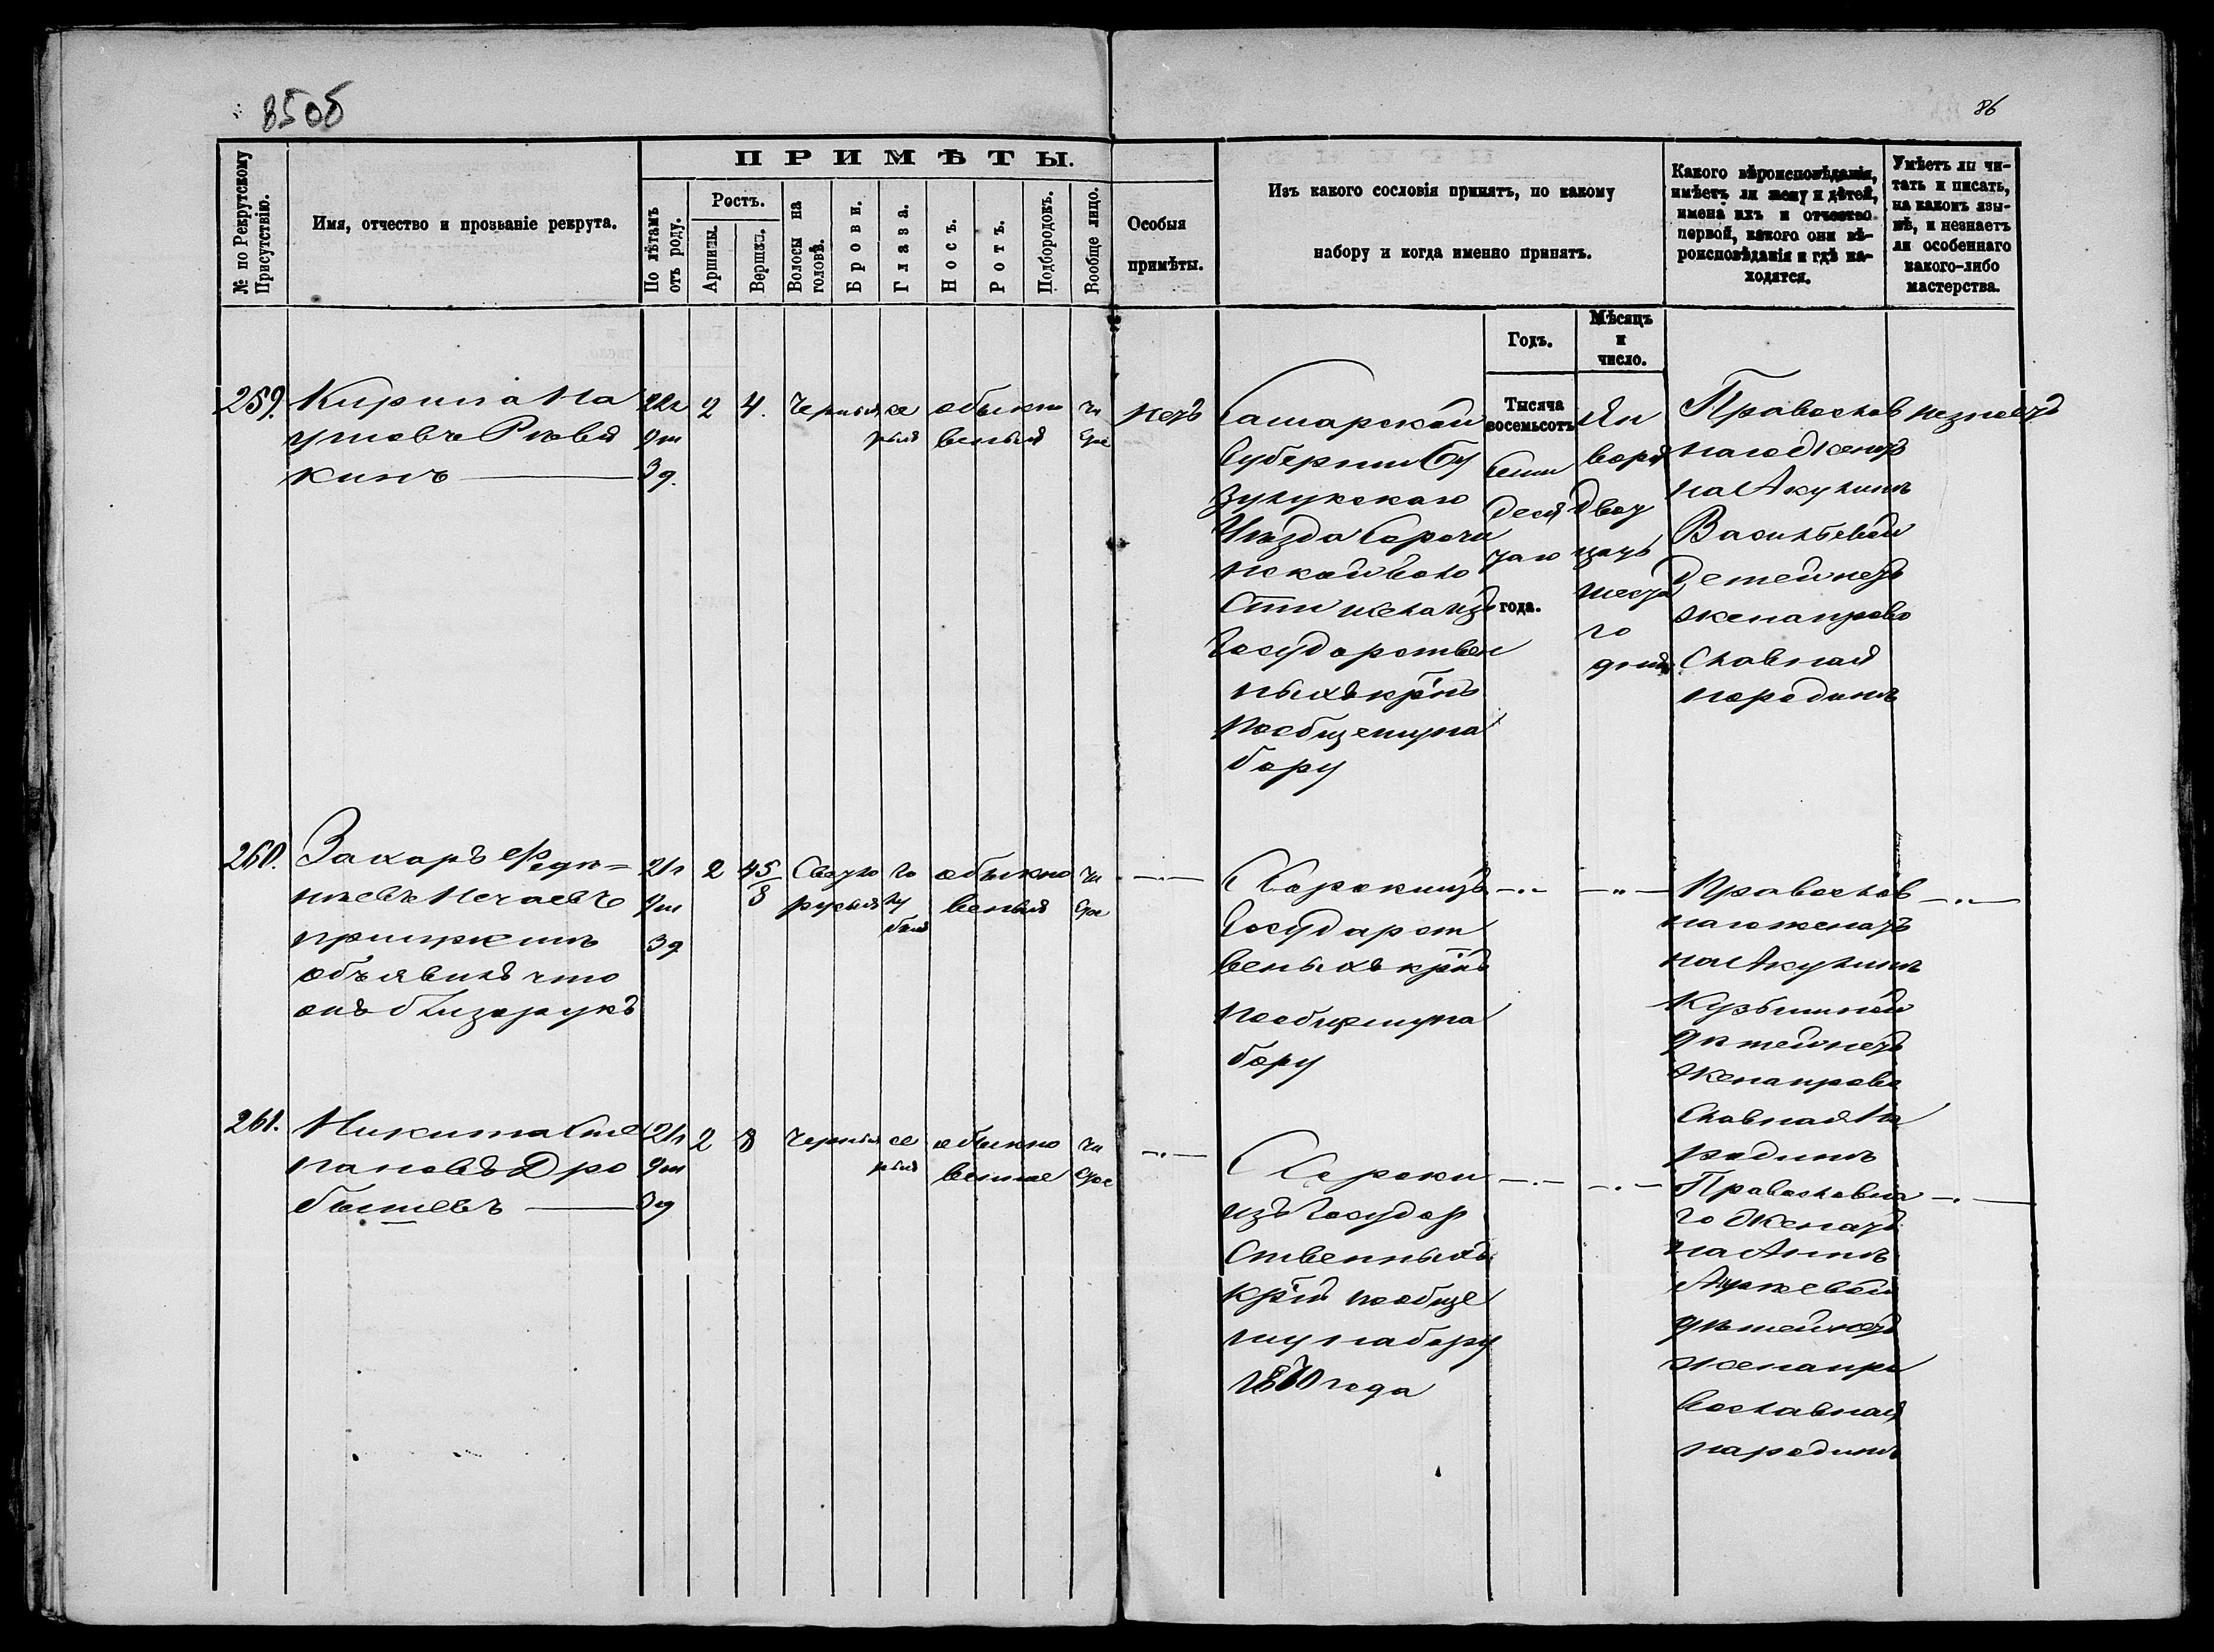 85 об
86
ПРИМѢТЫ.
№ по Рекрутскому Присутствію.
Имя, отчество и прозваніе рекрута.
По лѣтамъ отъ роду.
Ростъ.
Аршины.
Вершки.
Волосы на головѣ.
Брови.
Глаза.
Носъ.
Ротъ.
Подбородокъ.
Вообще лицо.
Особыя
примѣты.
Изъ какого сословія принятъ, по какому
набору и когда именно принятъ.
Какого вѣроисповѣданія,
имѣетъ ли жену и дѣтей,
имена ихъ и отчество
первой, какого они вѣ-
роисповѣданія и гдѣ на-
ходятся.
Умѣетъ ли чи-
тать и писать,
на какомъ язы-
кѣ, и незнаетъ
ли особеннаго
какого-либо
мастерства.
Годъ.
Мѣсяцъ
и
число.
259.
Кирила На
умовъ
кинъ
22л
9м
3д.
2
4.
Черныя
се
рыя
обыкно
веныя
чи
стое
нетъ
Самарской
Губернии Бу
зулукскаго
Уѣзда Сорочи
нской воло
сти
Государствен
ныхъ крнъ
по общему на
бору
Тысяча
восемьсотъ
семи
деся
таго
года.
Ян
варя
двад
цать
шеста
го
дня
Православ
наго женатъ
на Акулинѣ
Васильевой
Детей нетъ
жена право
славная
на родинѣ
незнаетъ
260.
Захаръ Фeди-
Нечаевъ
при
объявилъ что
онъ близорукъ
21л
9м
3д
2
4 5/8
Светло
русыя
го
лу
быя
обыкно
веныя
чи
стое
—"—
Государст
веныхъ крнъ
по общему на
бору
—"—
—"—
Православ
наго женатъ
на Акулинѣ
Кузьминой
дѣтей нетъ
жена право
славная на
родинѣ
—"—
261.
Никита Сте
пановъ Дро
бышевъ
21л
9м
3д
2
8
Черныя
се
рыя
обыкно
венное
чи
стое
—"—
изъ Государ
ственныхъ
крнъ по обще
му набору
1870 года
—"—
—"—
Православна
го женатъ
на Аннѣ
дѣтей нетъ
жена пра
вославная
на родинѣ
—"—